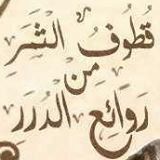 قُطُوفُ الثَّمَرِ
مِنْ
رَوَائِعِ الدُّرَرِ